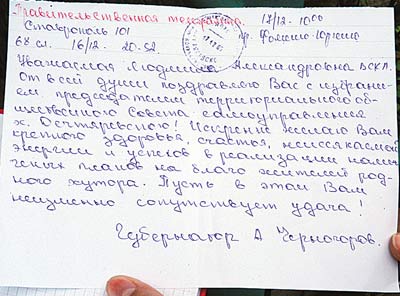 Правительственная телеграмма. 17/12. 1000
Ставрополь 101
68 сл. 16/12. 20.52. пр.
Уважаемая Людмила Александровна ВСКЛ.
От всей души поздравляю Вас с избрани-
ем председателем территориального об-
щественного Совета самоуправления
х. Октябрьского! Искренне желаю Вам
крепкого здоровья, счастья, неиссякаемой
энергии и успехов в реализации наме-
ченных планов на благо жителей род-
ного хутора. Пусть в этом Вам
неизменно сопутствует удача!
Губернатор А Черногоров.